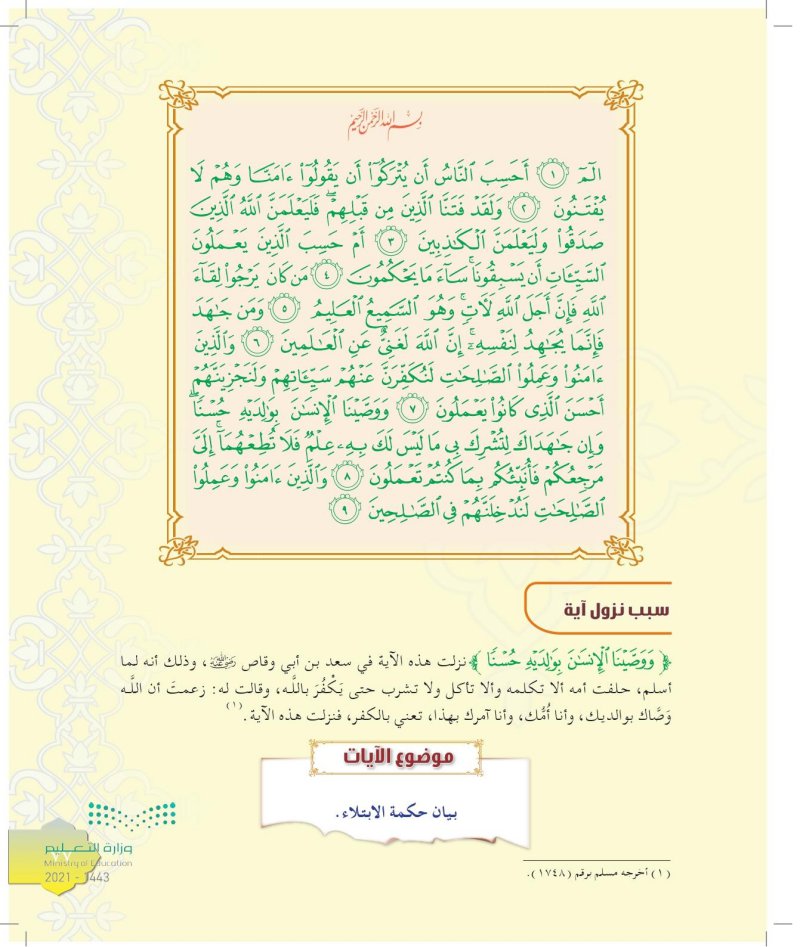 بِسْمِ ٱللَّهِ ٱلرَّحْمَٰنِ ٱلرَّحِيمِ
الٓمٓ ١ أَحَسِبَ ٱلنَّاسُ أَن يُتْرَكُوٓا۟ أَن يَقُولُوٓا۟ ءَامَنَّا وَهُمْ لَا
يُفْتَنُونَ ٢ وَلَقَدْ فَتَنَّا ٱلَّذِينَ مِن قَبْلِهِمْ ۖ فَلَيَعْلَمَنَّ ٱللَّهُ ٱلَّذِينَ
صَدَقُوا۟ وَلَيَعْلَمَنَّ ٱلْكَٰذِبِينَ ٣ أَمْ حَسِبَ ٱلَّذِينَ يَعْمَلُونَ
ٱلسَّيِّـَٔاتِ أَن يَسْبِقُونَا ۚ سَآءَ مَا يَحْكُمُونَ ٤ مَن كَانَ يَرْجُوا۟ لِقَآءَ
ٱللَّهِ فَإِنَّ أَجَلَ ٱللَّهِ لَءَاتٍ ۚ وَهُوَ ٱلسَّمِيعُ ٱلْعَلِيمُ ٥ وَمَن جَٰهَدَ
فَإِنَّمَا يُجَٰهِدُ لِنَفْسِهِۦٓ ۚ إِنَّ ٱللَّهَ لَغَنِىٌّ عَنِ ٱلْعَٰلَمِينَ ٦ وَٱلَّذِينَ
ءَامَنُوا۟ وَعَمِلُوا۟ ٱلصَّٰلِحَٰتِ لَنُكَفِّرَنَّ عَنْهُمْ سَيِّـَٔاتِهِمْ وَلَنَجْزِيَنَّهُمْ
أَحْسَنَ ٱلَّذِى كَانُوا۟ يَعْمَلُونَ ٧ وَوَصَّيْنَا ٱلْإِنسَٰنَ بِوَٰلِدَيْهِ حُسْنًا ۖ
وَإِن جَٰهَدَاكَ لِتُشْرِكَ بِى مَا لَيْسَ لَكَ بِهِۦ عِلْمٌ فَلَا تُطِعْهُمَآ ۚ إِلَىَّ
مَرْجِعُكُمْ فَأُنَبِّئُكُم بِمَا كُنتُمْ تَعْمَلُونَ ٨ وَٱلَّذِينَ ءَامَنُوا۟ وَعَمِلُوا۟
ٱلصَّٰلِحَٰتِ لَنُدْخِلَنَّهُمْ فِى ٱلصَّٰلِحِينَ ٩
سبب نزول آية
﴿ وَوَصَّيْنَا ٱلْإِنسَٰنَ بِوَٰلِدَيْهِ حُسْنًا ﴾ نزلت هذه الآية في سعد بن أبي وقاص رضي الله عنه، وذلك أنه لما
أسلم، حلفت أمه ألا تكلمه وألا تأكل ولا تشرب حتى يَكْفُرَ باللـه، وقالت له: زعمتَ أن اللـه
وَصَّاك بوالديك، وأنا أُمُّك، وأنا آمرك بهذا، تعني بالكفر، فنزلت هذه الآية.(١)
موضوع الآيات
بيان حكمة الابتلاء.
(١) أخرجه مسلم برقم (١٧٤٨).
وزارة التعـــليم
٧٧
Ministry of Education
2021 - 1443